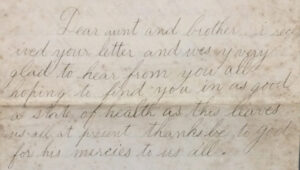 Dear aunt and brother i rece
ived your letter and wes very very
glad to hear from you all
hoping to find you in as good
a state of health as this leaves
us all at present thanks be to god
for his mercies to us all.